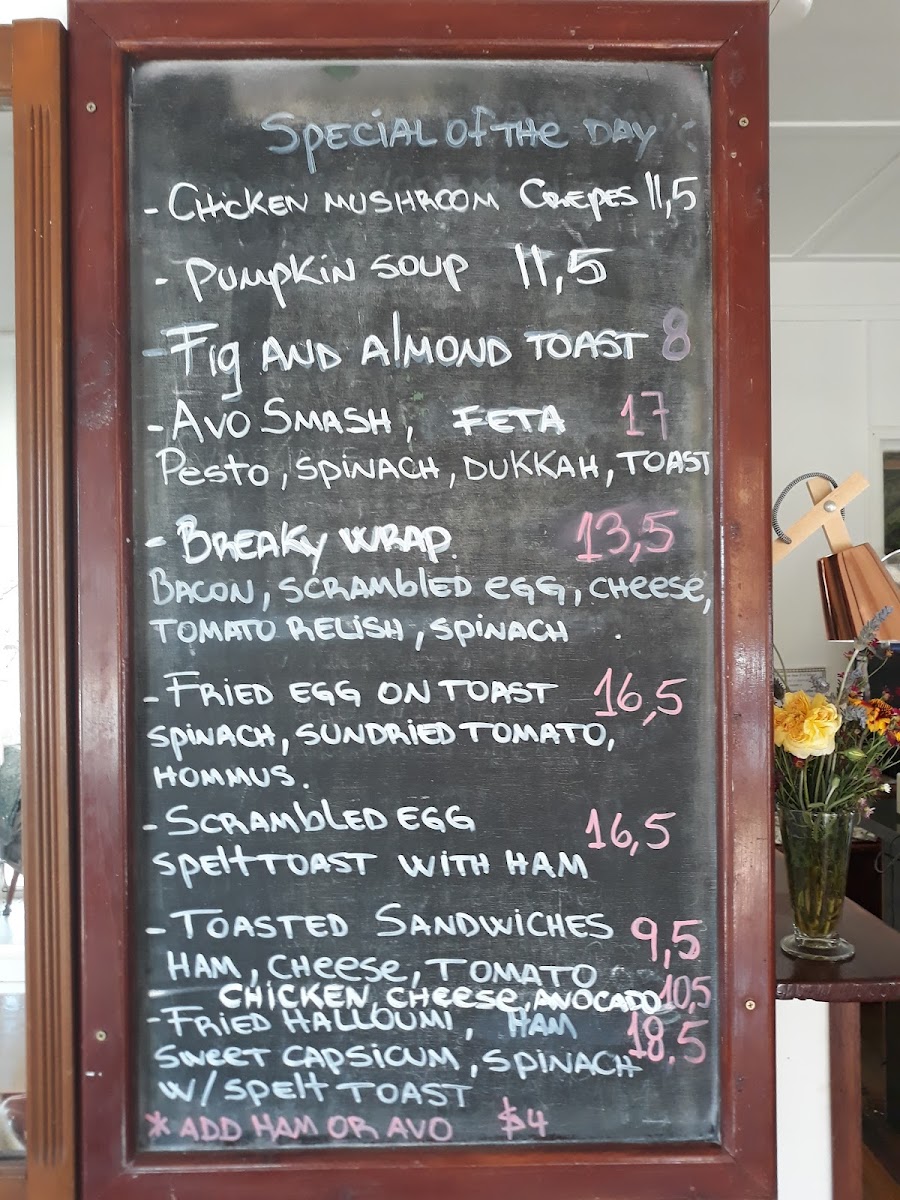 Special of the Day
- Chicken mushroom Crepes 11,5
- Pumpkin soup 11,5
- Fig and almond toast 8
- Avo Smash, Feta 17
Pesto, spinach, dukkah, toast
- Breaky wrap. 13,5
Bacon, scrambled egg, cheese,
tomato relish, spinach .
- Fried egg on toast 16,5
spinach, sundried tomato,
hommus.
- Scrambled egg 16,5
spelt toast with ham
- Toasted Sandwiches 9,5
ham, cheese, tomato
- chicken, cheese, avocado 10,5
- Fried halloumi, ham 18,5
sweet capsicum, spinach
w/ spelt toast
* add ham or avo $4